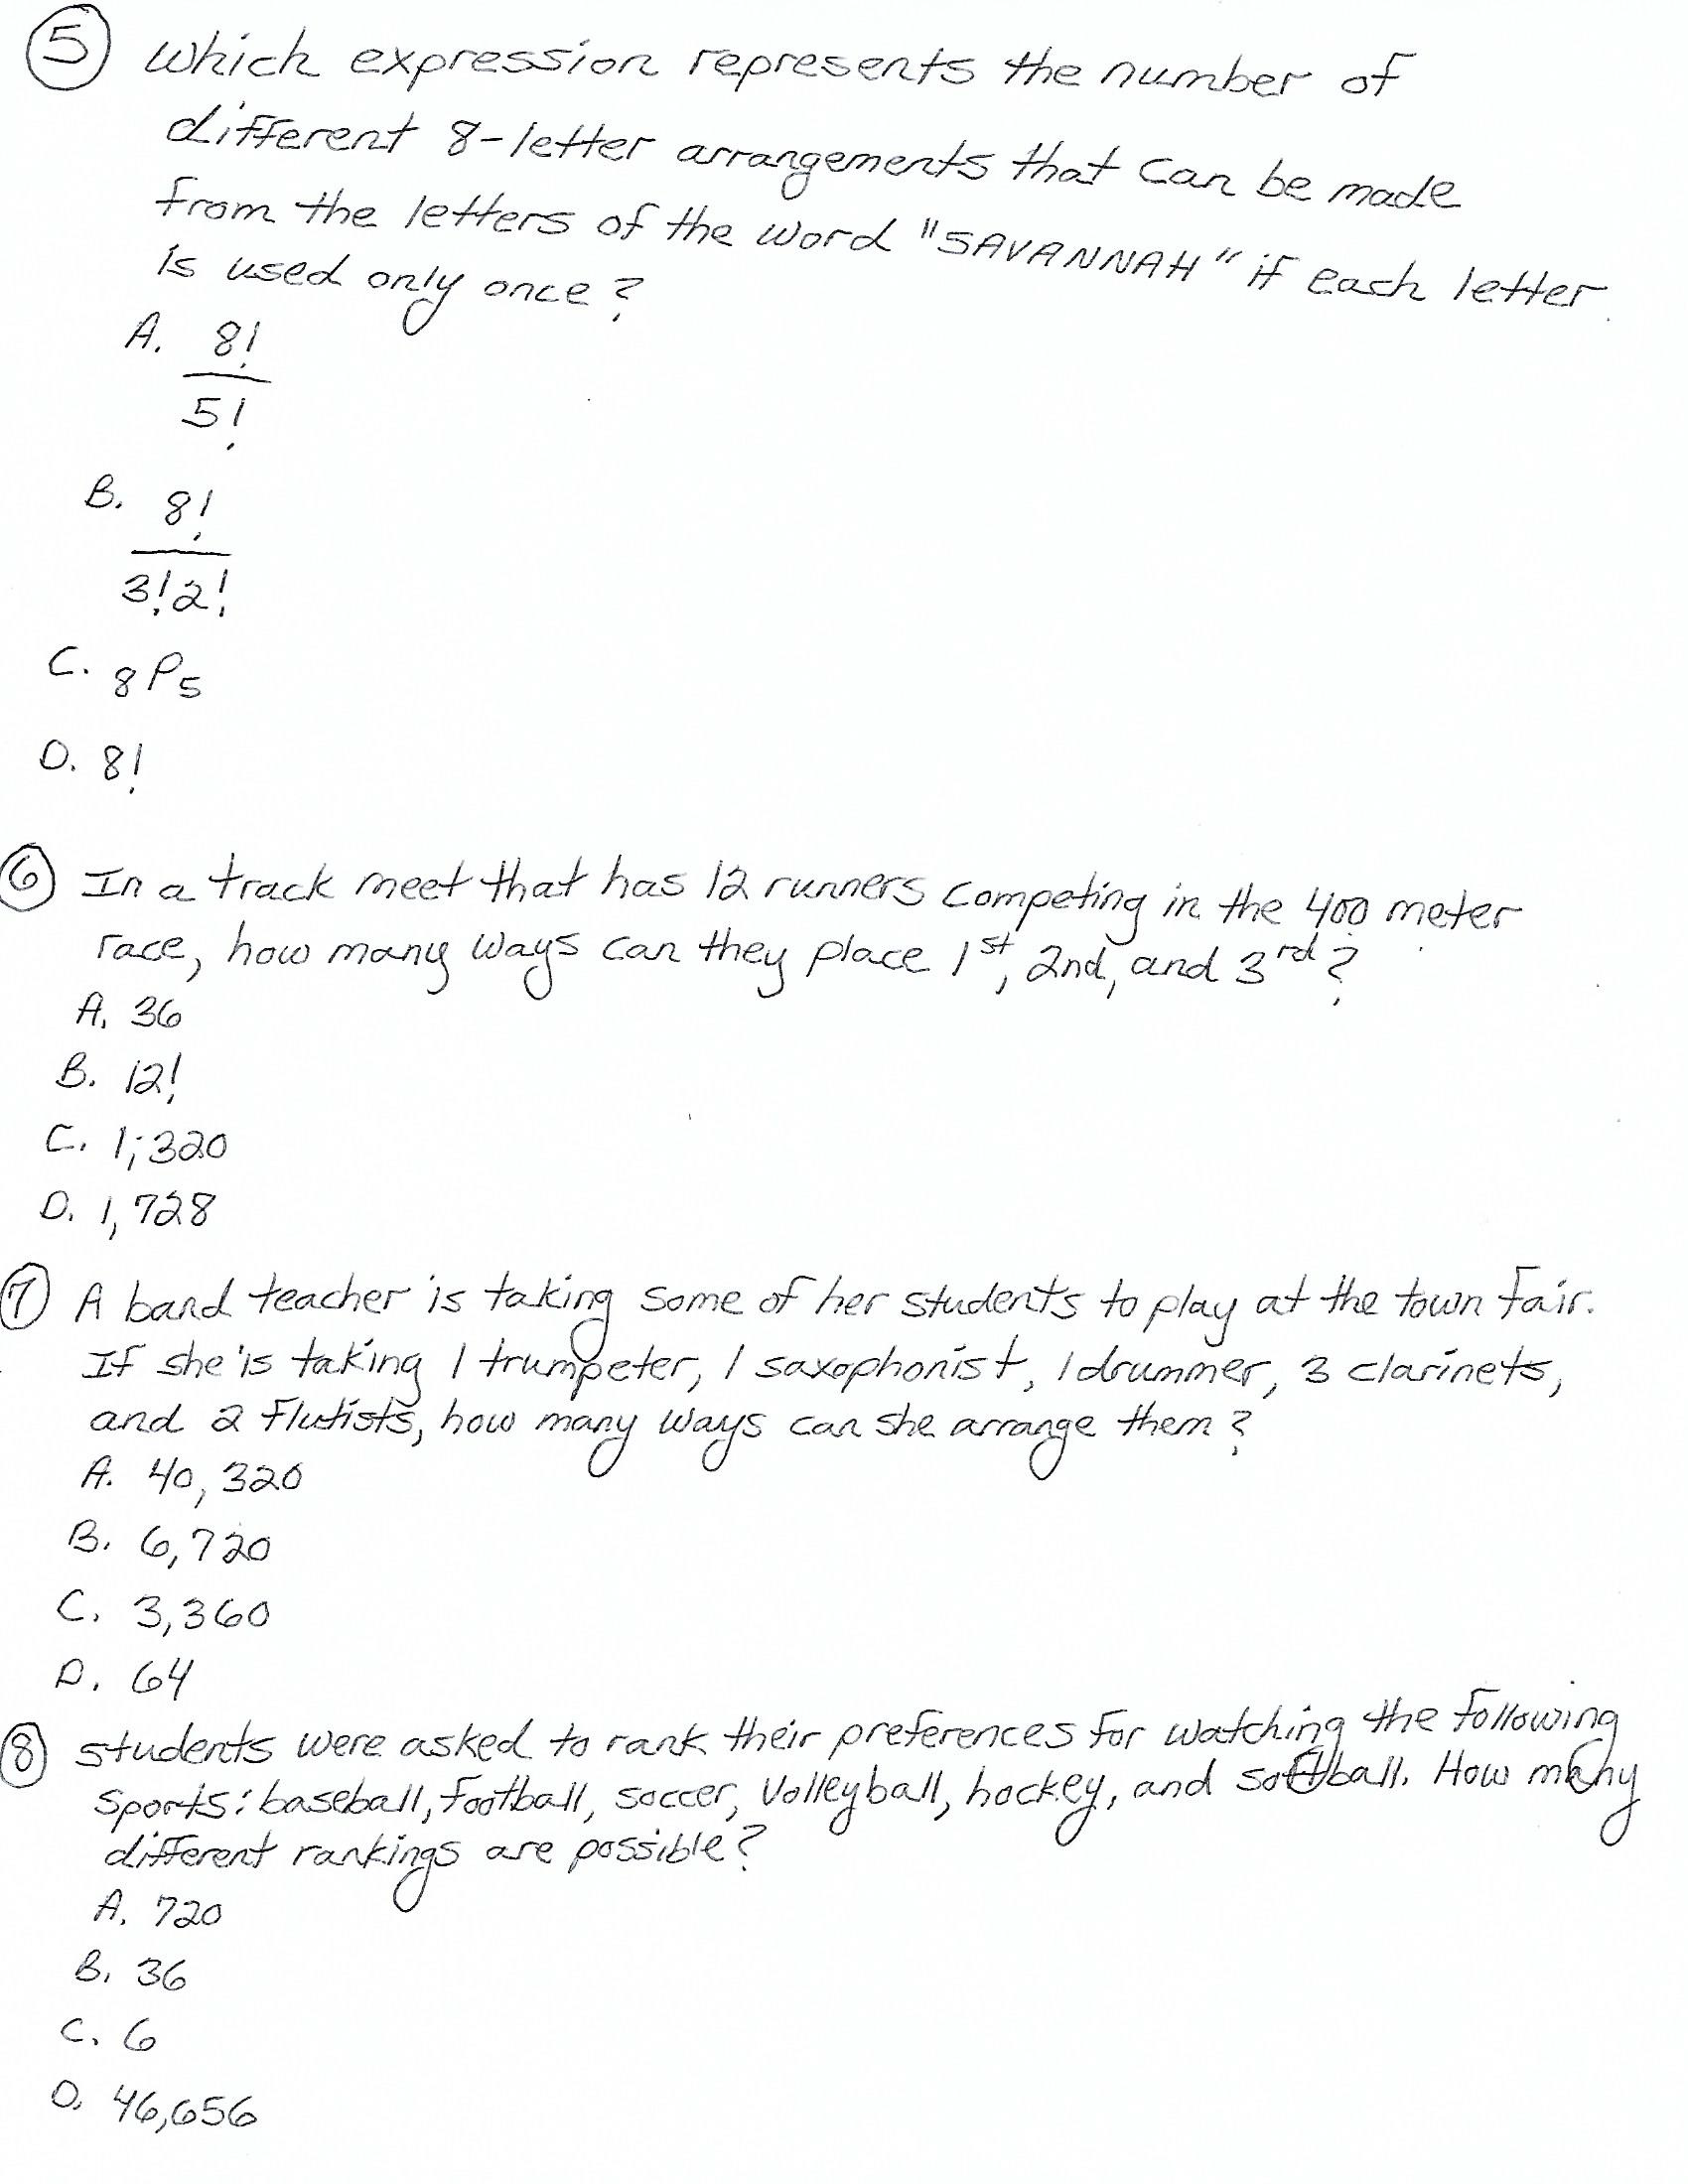 5 Which expression represents the number of
different 8-letter arrangements that can be made
from the letters of the word "SAVANNAH" if each letter
is used only once?
A. 8!
5!
B. 8!
3!2!
C. 8P5
D. 8!
6 In a track meet that has 12 runners competing in the 400 meter
race, how many ways can they place 1st, 2nd, and 3rd?
A. 36
B. 12!
C. 1,320
D. 1,728
7 A band teacher is taking some of her students to play at the town fair.
If she is taking 1 trumpeter, 1 saxophonist, 1 drummer, 3 clarinets,
and 2 flutists, how many ways can she arrange them?
A. 40,320
B. 6,720
C. 3,360
D. 64
8 students were asked to rank their preferences for watching the following
sports: baseball, football, soccer, volleyball, hockey, and softball. How many
different rankings are possible?
A. 720
B. 36
C. 6
D. 46,656